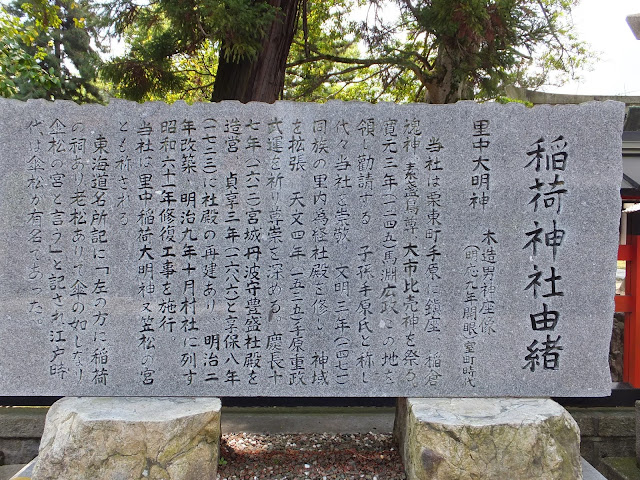 稲荷神社由緒
里中大明神　木造男神座像
（明応九年開眼室町時代）
当社は栗東町手原に鎮座　稲倉
魂神　素盞烏尊　大市比売神を祭る
寛元三年（一二四五）馬淵広政この地を
領し勧請する　子孫手原氏と称し
代々当社を崇敬　文明三年（一四七一）
同族の里内為経社殿を修し　神域
を拡張　天文四年（一五三五）手原重政
武運を祈り尊崇を深める。慶長十
七年（一六一二）宮城丹波守豊盛社殿を
造営　貞享三年（一六八六）と享保八年
（一七二三）に社殿の再建あり　明治二
年改築・明治九年十月村社に列す
昭和六十一年修復工事を施行。
当社は里中稲荷大明神又笠松の宮
とも称される
東海道名所記に「左の方に稲荷
の祠あり老松ありて傘の如したり
傘松の宮と言う」と記され江戸時
代は傘松が有名であった。